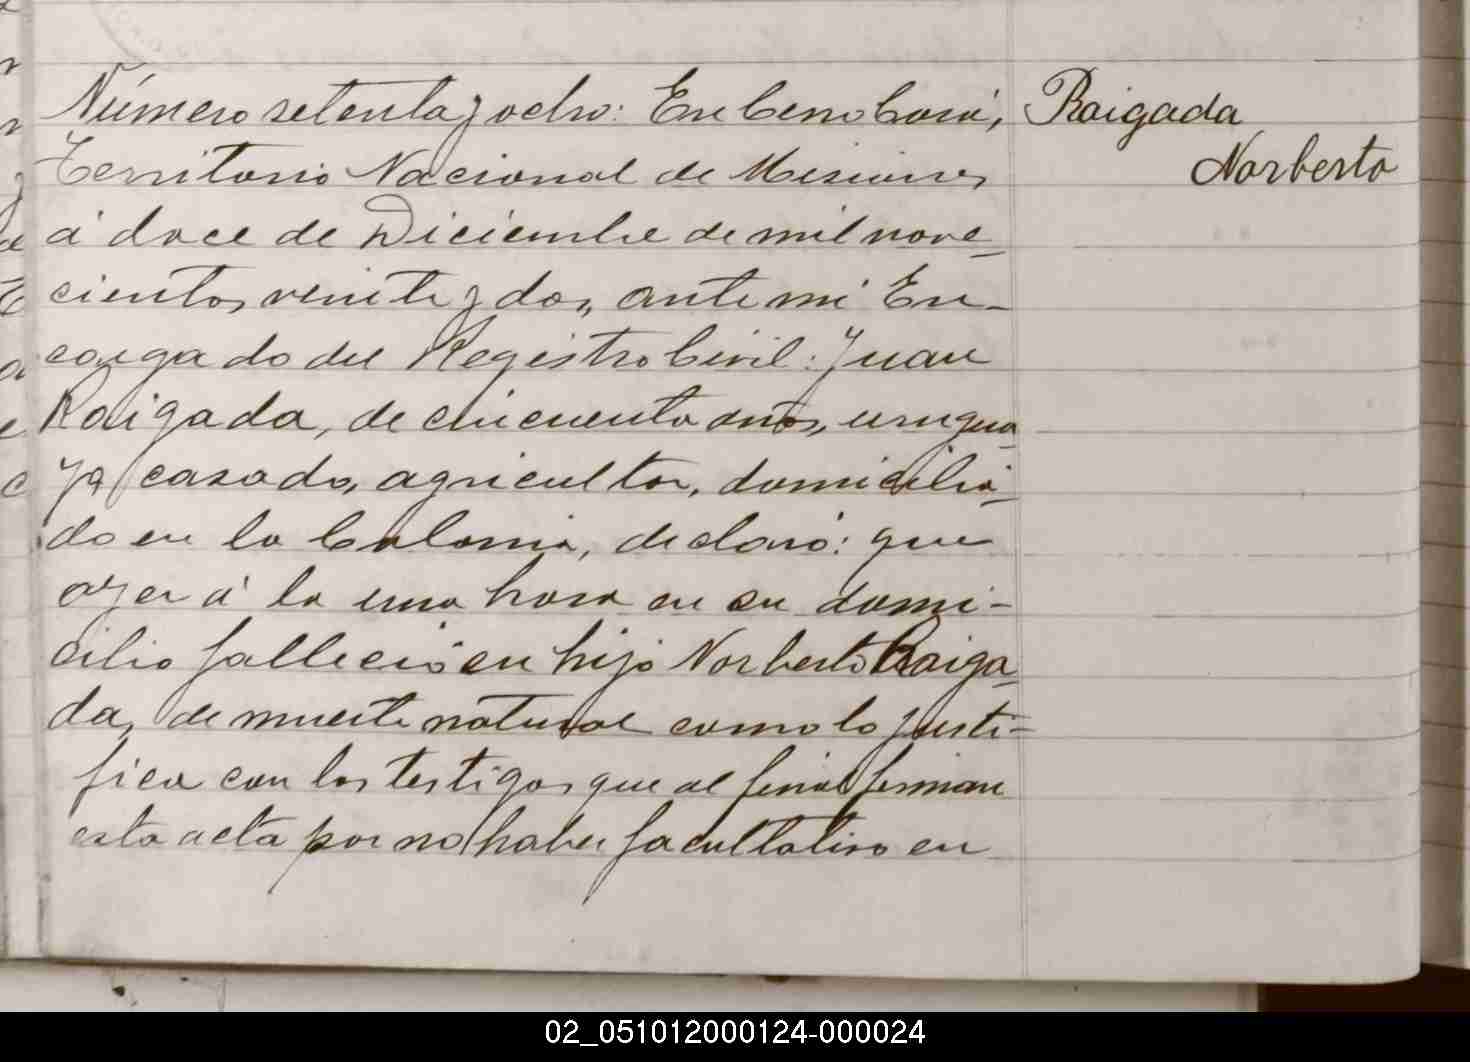 Número setenta y ocho: En Cerro Corá,
Territorio Nacional de Misiones
á doce de Diciembre de mil nove-
cientos veinte y dos, ante mi En-
cargado del Registro Civil: Juan
Raigada, de cincuenta años, urugua
yo casado, agricultor, domicilia-
do en la Colonia, declaró: que
ayer á la una hora en su domi-
cilio falleció su hijo Norberto Raiga-
da, de muerte natural como lo justi-
fica con los testigos que al final firman
esta acta por no haber facultativo en
Raigada
Norberto
02_051012000124-000024